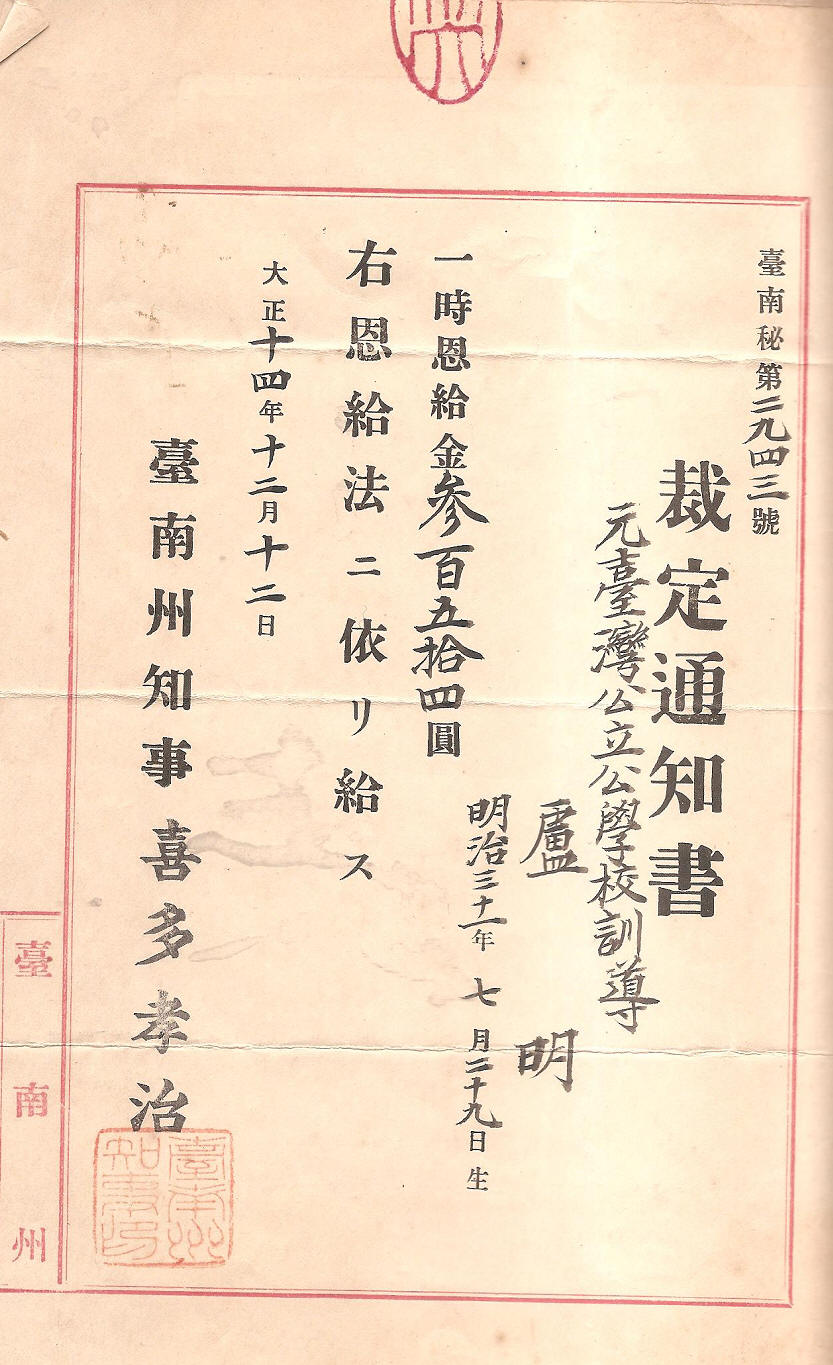 臺南秘第二九四三號
裁定通知書
元臺灣公立公學校訓導
盧明
明治三十一年七月二十九日生
一時恩給金參百五拾四圓
右恩給法ニ依リ給ス
大正十四年十二月十二日
臺南州知事喜多孝治
臺南州
知事印
臺南州